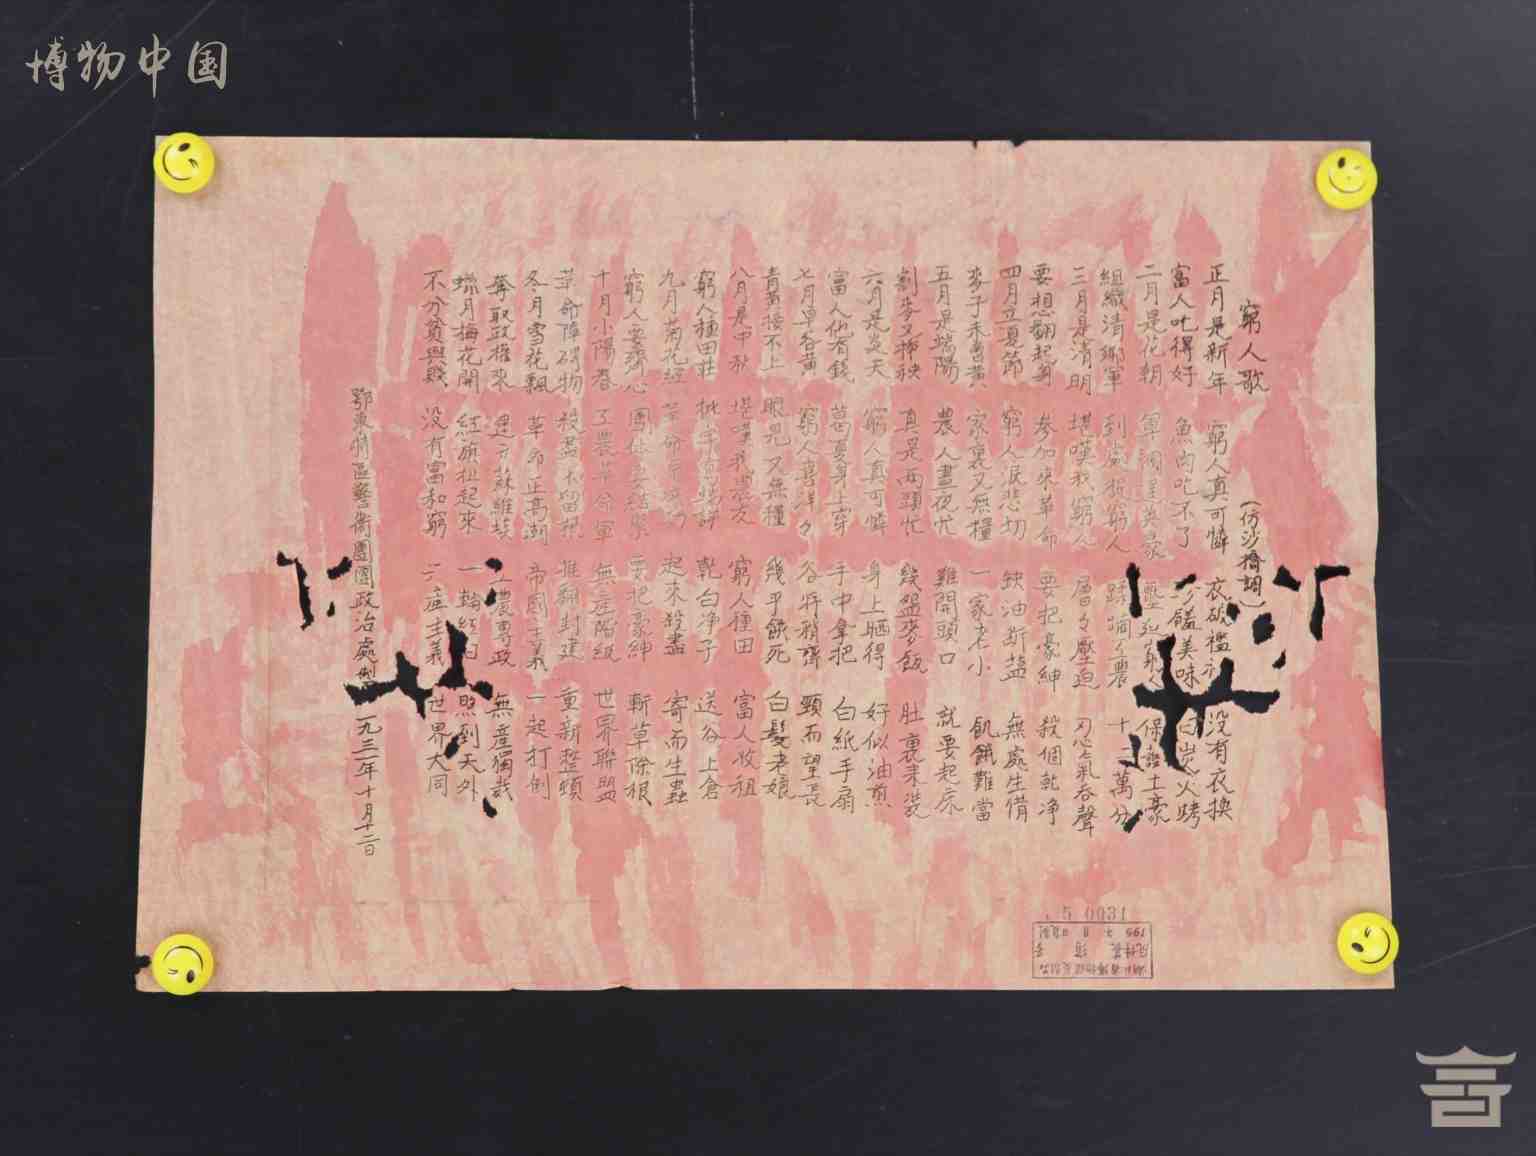 博物中国
窮人歌 (仿沙擔調)
正月是新年 窮人真可憐 衣破襤衫 没有衣換
富人吃得好 魚肉吃不了 饈美味 白炭火烤
二月是花朝 軍閥逞英豪 壓迫窮人 保護土豪
組織清鄉軍 到處捉窮人 踩蹋工農 十二萬分
三月是清明 堪嘆我窮人 層々壓迫 忍氣吞聲
要想翻起身 參加來革命 要把豪紳 殺個乾净
四月立夏節 窮人淚悲切 缺油斷塩 無處生借
麥子未曾黄 家裏又無糧 一家老小 飢餓難當
五月是端陽 農人晝夜忙 雞開頭口 就要起床
割麥又揷秧 真是兩頭忙 幾盌麥飯 肚裏未裝
六月是炎天 窮人真可憐 身上晒得 好似油煎
富人他有錢 葛夏身上穿 手中拿把 白紙手扇
七月早谷黄 窮人喜洋々 谷將稍齊 頸而望長
青黄接不上 眼見又無糧 幾乎餓死 白髮老娘
八月是中秋 堪嘆我農友 窮人種田 富人收租
窮人種田莊 乾白净子 送谷上倉
九月菊花 起來殺盡 寄而生蟲
窮人要齊心 團体要結緊 要把豪紳 斬草除根
十月小陽春 工農革命軍 無產階級 世界聯盟
革命障碍物 殺盡不留根 推翻封建 重新整頓
冬月雪花飄 革命正高潮 帝國主義 一起打倒
奪取政權來 建立蘇維埃 工農專政 無產獨裁
臘月梅花開 紅旗扯起來 一輪紅日 照到天外
不分貧與賤 没有富和窮 產主義 世界大同
鄂東 區警衛團團政治處製 一九三一年十月十二日
5 0031